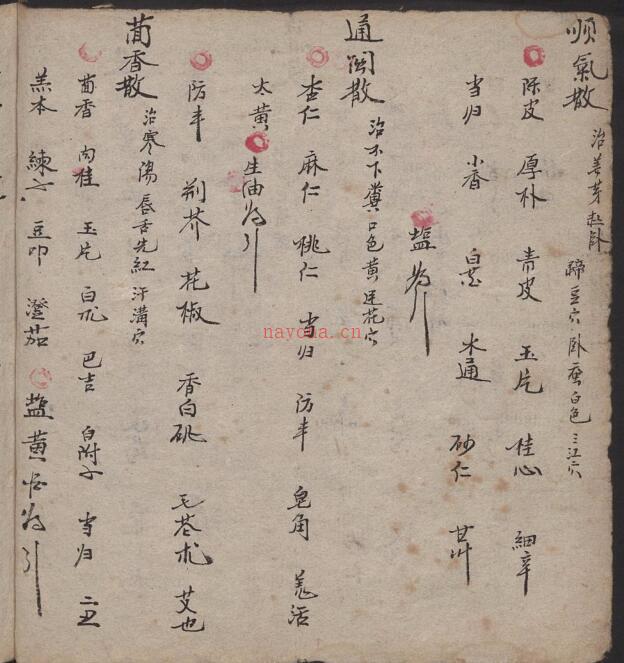 順氣散 治姜芽起卧 蹄豆穴卧蚕白色三江穴
陈皮 厚朴 青皮 玉片 桂心 細辛
当归 小香 白芷 木通 砂仁 甘艸
塩為引
通関散 治不下糞口色黄莲花穴
杏仁 麻仁 桃仁 当归 防丰 皂角 羌活
大黄 生油為引
防丰 荆芥 花椒 香白 毛苍术 艾也
茴香散 治寒傷唇舌先紅汗溝穴
茴香 肉桂 玉片 白 巴吉 白附子 当归 二丑
羔本 練 豆叩 澄茄 塩黄 為引
navona.cn